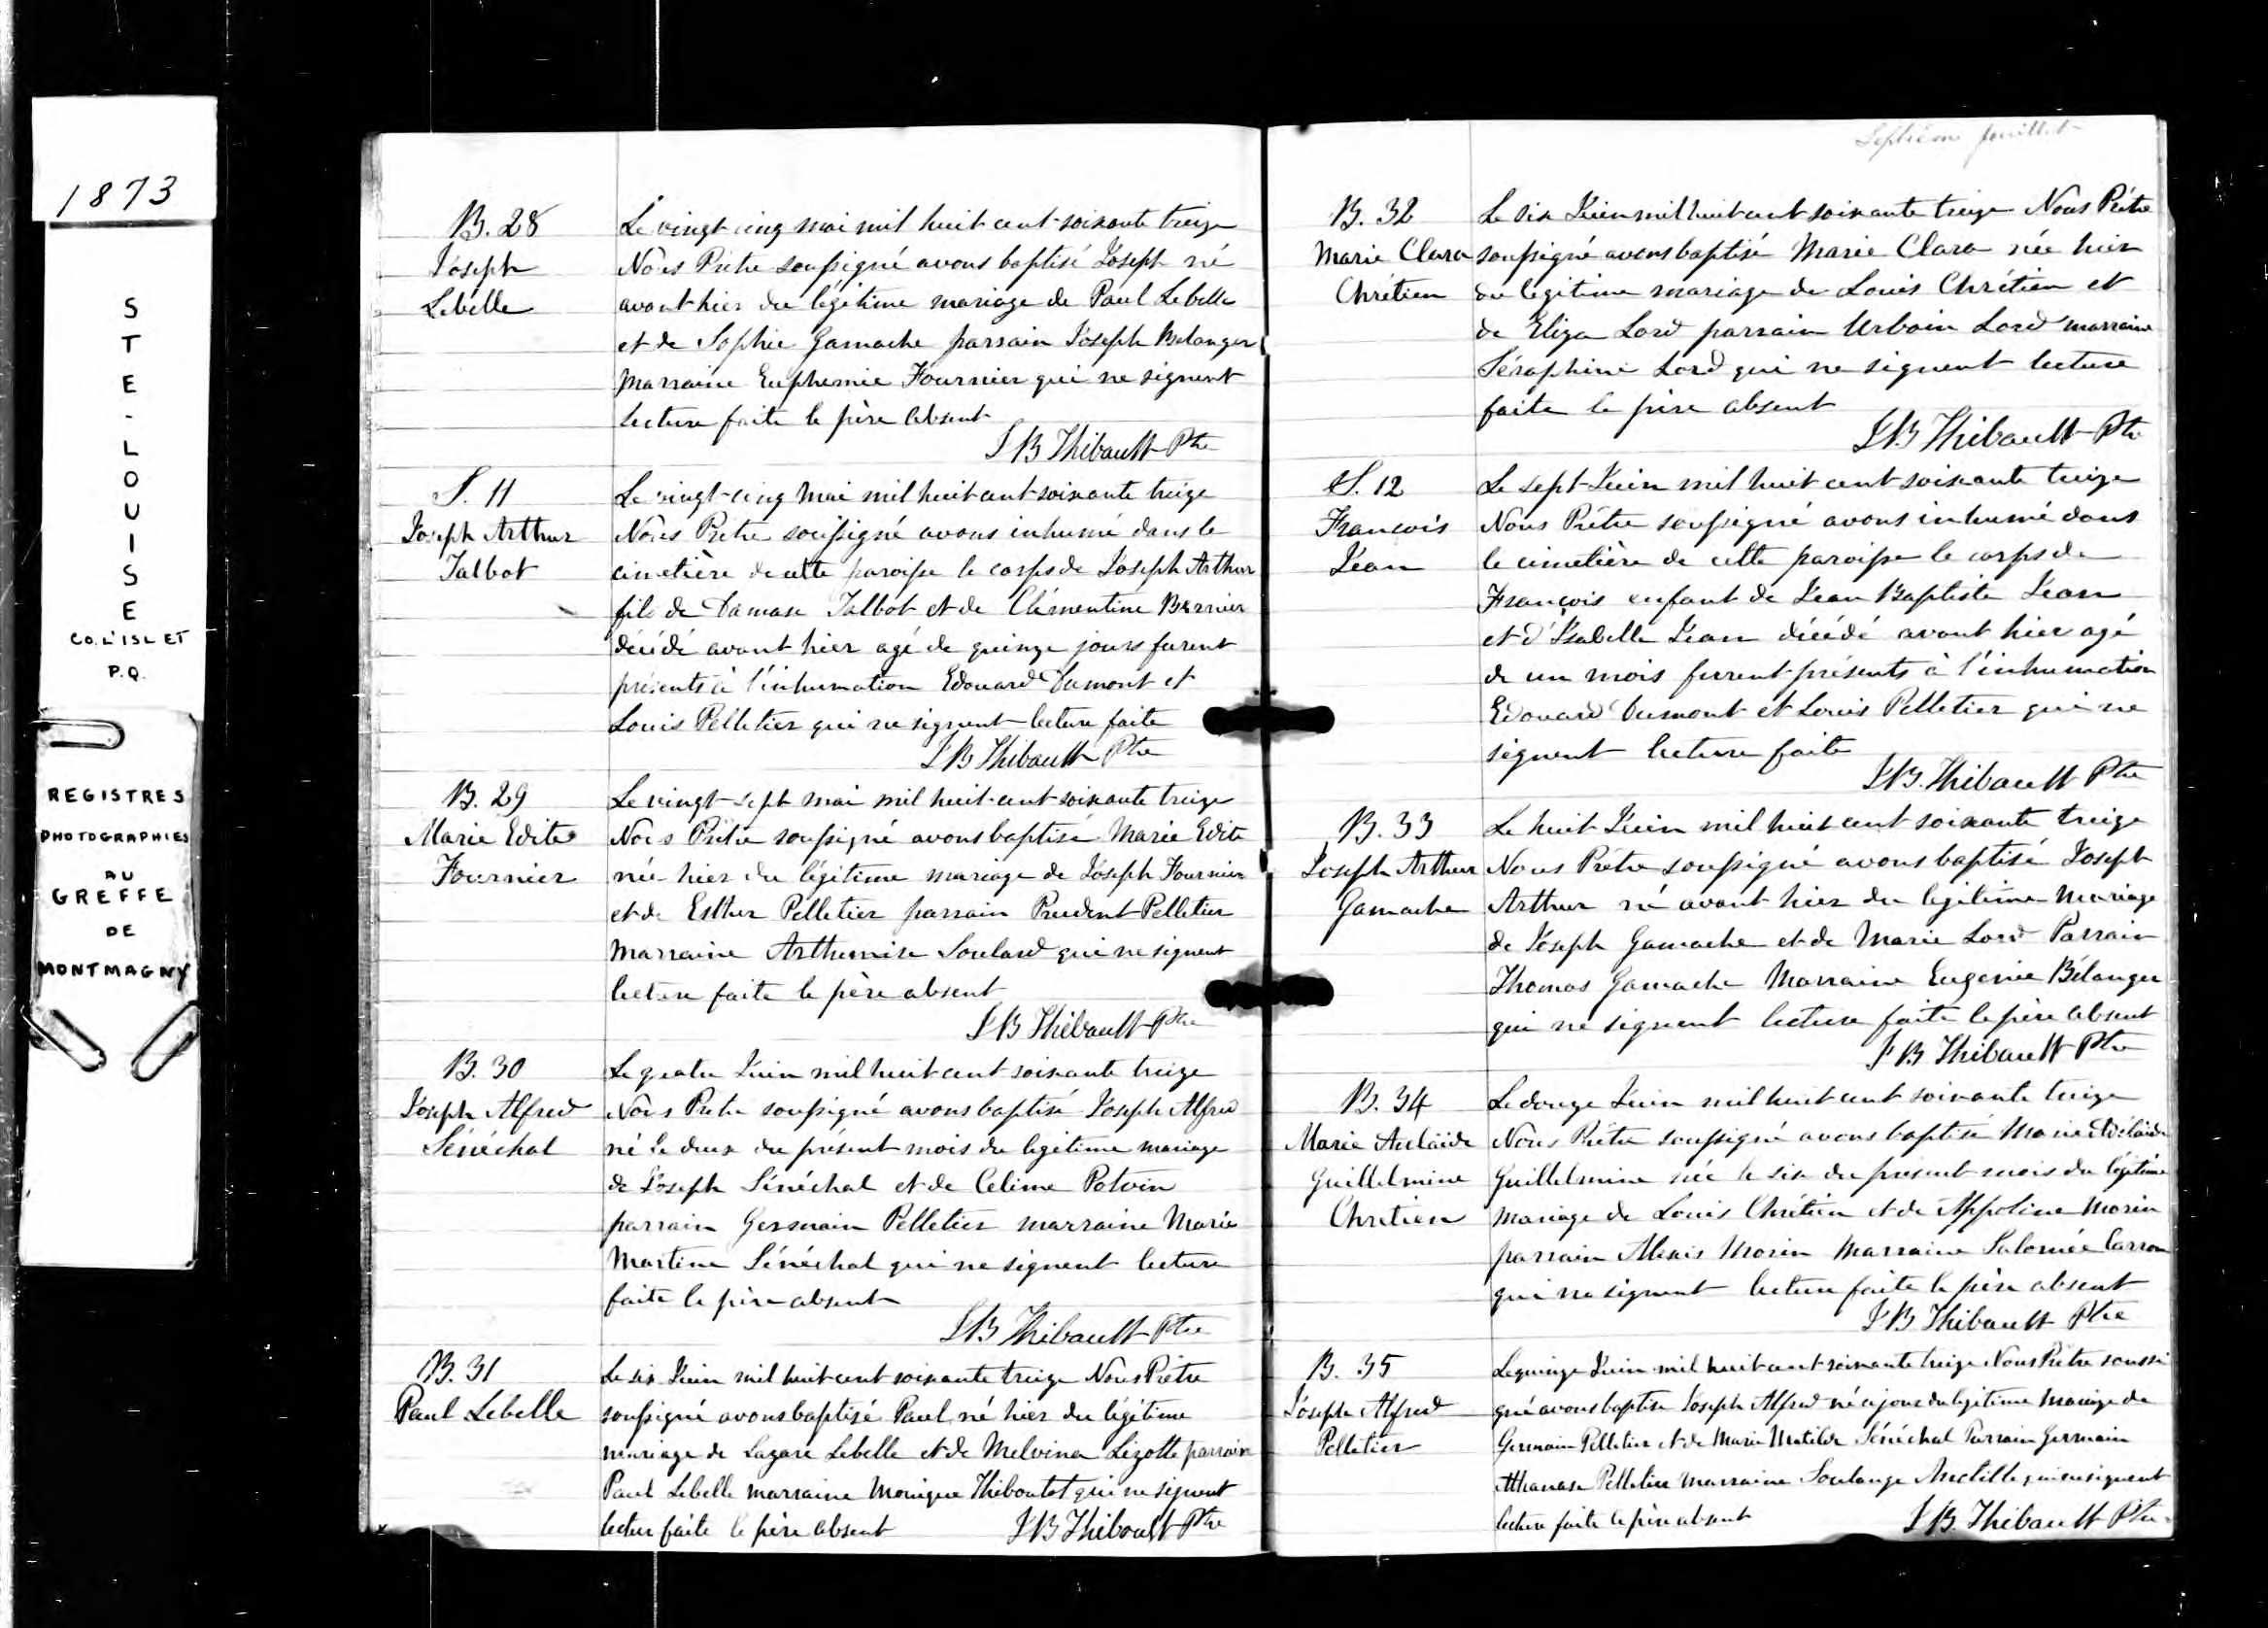 1873
STE-LOUISE
CO. L'ISLET
P.Q.
REGISTRES
PHOTOGRAPHIES
AU
GREFFE
DE
MONTMAGNY
B. 28
Joseph
Lebelle
Le vingt cinq mai mil huit cent soixante treize
Nous Prêtre soussigné avons baptisé Joseph né
avant hier du légitime mariage de Paul Lebelle
et de Sophie Gamache parrain Joseph Belanger
marraine Euphemie Fournier qui ne signent
lecture faite le père absent
J B Thibault Ptre
S. 11
Joseph Arthur
Talbot
Le vingt-cinq mai mil huit cent soixante treize
Nous Pretre soussigné avons inhumé dans le
cimetière de cette paroisse le corps de Joseph Arthur
fils de Damase Talbot et de Clémentine Bernier
décédé avant hier agé de quinze jours furent
présents à l'inhumation Edouard Dumont et
Louis Pelletier qui ne signent lecture faite
J B Thibault Ptre
B. 29
Marie Edite
Fournier
Le vingt-sept mai mil huit cent soixante treize
Nous Prêtre soussigné avons baptisé Marie Edite
née hier du légitime mariage de Joseph Fournier
et de Esther Pelletier parrain Prudent Pelletier
marraine Arthemise Soulard qui ne signent
lecture faite le père absent
J B Thibault Ptre
B. 30
Joseph Alfred
Sénéchal
Le quatre Juin mil huit cent soixante treize
Nous Pretre soussigné avons baptisé Joseph Alfred
né le deux du présent mois du legitime mariage
de Joseph Sénéchal et de Celime Potvin
parrain Germain Pelletier marraine Marie
Martine Sénéchal qui ne signent lecture
faite le père absent
J B Thibault Ptre
B. 31
Paul Lebelle
Le six Juin mil huit cent soixante treize Nous Prêtre
soussigné avons baptisé Paul né hier du légitime
mariage de Lazare Lebelle et de Melvina Lizotte parrain
Paul Lebelle marraine Monique Thiboutot qui ne signent
lecture faite le père absent J B Thibault Ptre
Septième feuillet
B. 32
Marie Clara
Chrétien
Le six Juin mil huit cent soixante treize Nous Prêtre
soussigné avons baptisé Marie Clara née hier
du legitime mariage de Louis Chrétien et
de Eliza Lord parrain Urbain Lord marraine
Séraphine Lord qui ne signent lecture
faite le père absent
J B Thibault Ptre
S. 12
François
Jean
Le sept Juin mil huit cent soixante treize
Nous Prêtre soussigné avons inhumé dans
le cimetière de cette paroisse le corps de
François enfant de Jean Baptiste Jean
et d'Isabelle Jean décédé avant hier agé
de un mois furent présents à l'inhumation
Edouard Dumont et Louis Pelletier qui ne
signent lecture faite
J B. Thibault Ptre
B. 33
Joseph Arthur
Gamache
Le huit Juin mil huit cent soixante treize
Nous Prêtre soussigné avons baptisé Joseph
Arthur né avant hier du legitime mariage
de Joseph Gamache et de Marie Lord Parrain
Thomas Gamache Marraine Eugenie Bélanger
qui ne signent lecture faite le père absent
J B Thibault Ptre
B. 34
Marie Adelaïde
Guillelmine
Chretien
Le douze Juin mil huit cent soixante treize
Nous Prêtre soussigné avons baptisé Marie Adélaïde
Guillelmine née le six du présent mois du légitime
mariage de Louis Chrétien et de Appoline Morin
parrain Alexis Morin Marraine Salomée Carron
qui ne signent lecture faite le père absent
J B Thibault Ptre
B. 35
Joseph Alfred
Pelletier
Le quinze Juin mil huit cent soixante treize Nous Prêtre soussi
gné avons baptisé Joseph Alfred né ce jour du legitime mariage de
Germain Pelletier et de Marie Matilde Sénéchal Parrain Germain
Athanase Pelletier marraine Soulange Anctille qui ne signent
lecture faite le père absent J B. Thibault Ptre